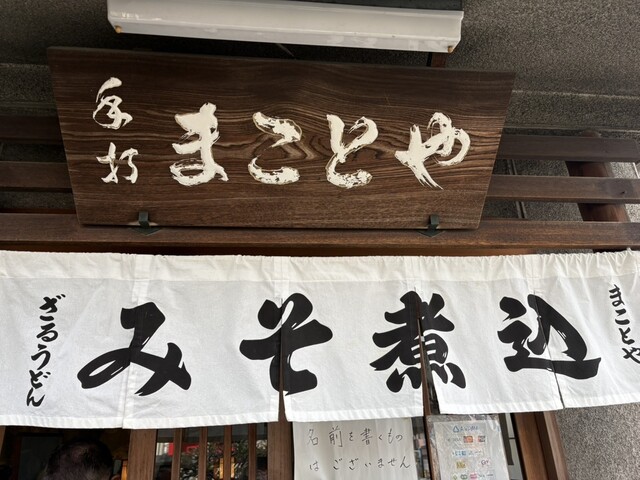 手打
まことや
ざるうどん
みそ煮込
まことや
名前を書くもの
はございません